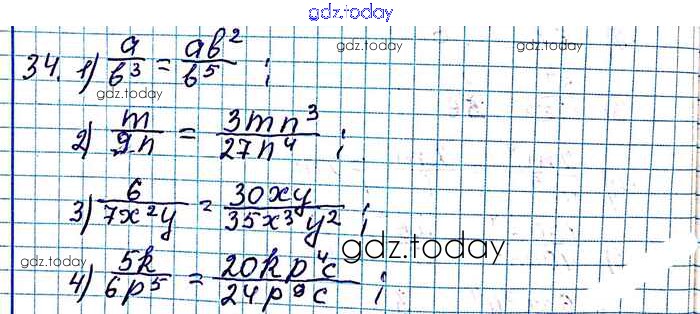 gdz.today
34. 1) a/b³ = ab²/b⁵ ;
gdz.today gdz.today
gdz.today
2) m/9n = 3mn³/27n⁴ ;
3) 6/7x²y = 30xy/35x³y² ;
gdz.today
gdz.today
4) 5k/6p⁵ = 20kp⁴c/24p⁹c ;
gdz.today